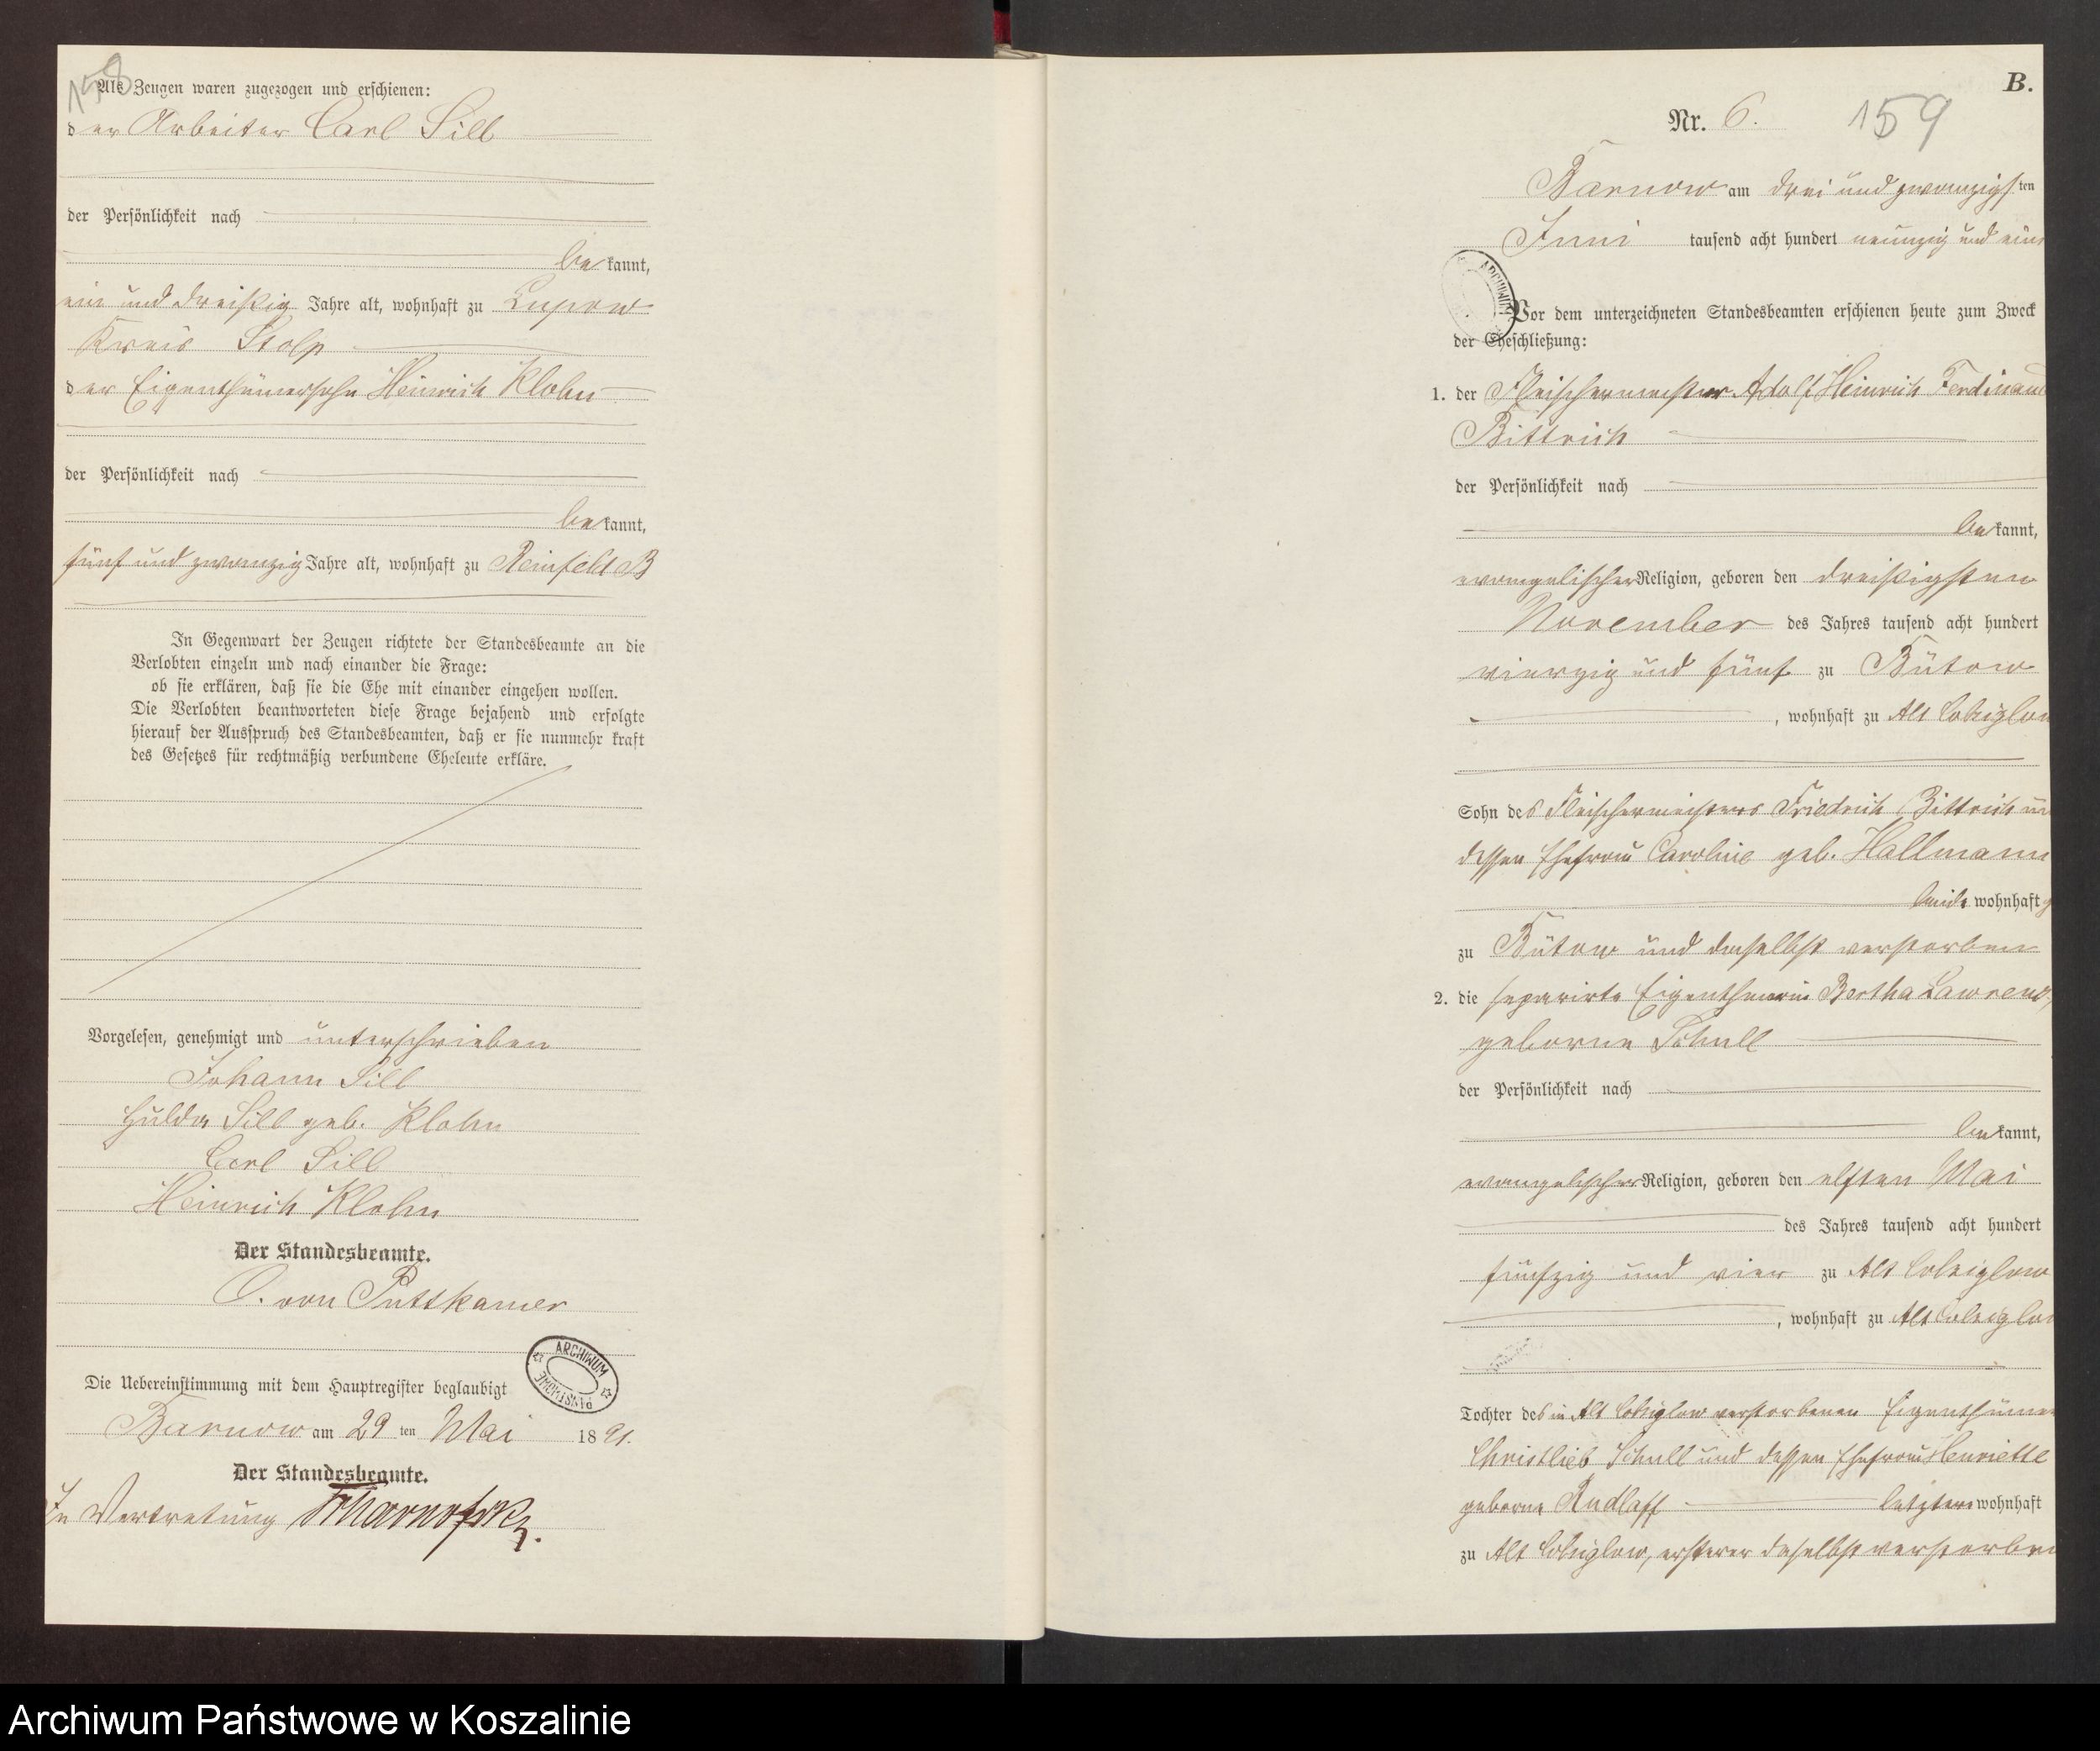 158
Als Zeugen waren zugezogen und erschienen:
der Arbeiter Carl Sill
der Persönlichkeit nach
bekannt,
ein und dreißig Jahre alt, wohnhaft zu Lupow
Kreis Stolp
der Eigenthümersohn Heinrich Klohn
der Persönlichkeit nach
bekannt,
fünf und zwanzig Jahre alt, wohnhaft zu Reinfeld B
In Gegenwart der Zeugen richtete der Standesbeamte an die
Verlobten einzeln und nach einander die Frage:
ob sie erklären, daß sie die Ehe mit einander eingehen wollen.
Die Verlobten beantworteten diese Frage bejahend und erfolgte
hierauf der Ausspruch des Standesbeamten, daß er sie nunmehr kraft
des Gesetzes für rechtmäßig verbundene Eheleute erkläre.
Vorgelesen, genehmigt und unterschrieben
Johann Sill
Hulda Sill geb. Klohn
Carl Sill
Heinrich Klohn
Der Standesbeamte.
O. von Puttkamer
ARCHIWUM PAŃSTWOWE
Die Uebereinstimmung mit dem Hauptregister beglaubigt
Barnow am 29 ten Mai 1891.
Der Standesbeamte.
In Vertretung
B.
Nr. 6.
159
Barnow am drei und zwanzigsten
Juni tausend acht hundert neunzig und eins
ARCHIWUM
Vor dem unterzeichneten Standesbeamten erschienen heute zum Zweck
der Eheschließung:
1. der Fleischermeister Adolf Heinrich Ferdinand
Bittrich
der Persönlichkeit nach
bekannt,
evangelischer Religion, geboren den dreißigsten
November des Jahres tausend acht hundert
vierzig und fünf zu Bütow
, wohnhaft zu Alt Colziglow
Sohn des Fleischermeisters Friedrich Bittrich un
dessen Ehefrau Caroline geb. Hallmann
beide wohnhaft g
zu Bütow und daselbst verstorben
2. die separirte Eigenthümerin Bertha Lawrenz,
geborne Schull
der Persönlichkeit nach
bekannt,
evangelischer Religion, geboren den elften Mai
des Jahres tausend acht hundert
fünfzig und vier zu Alt Colziglow
, wohnhaft zu Alt Colziglow
Tochter des in Alt Colziglow verstorbenen Eigenthümer
Christlieb Schull und dessen Ehefrau Henriette
geborne Radlaff letztere wohnhaft
zu Alt Colziglow, ersterer daselbst verstorben
Archiwum Państwowe w Koszalinie